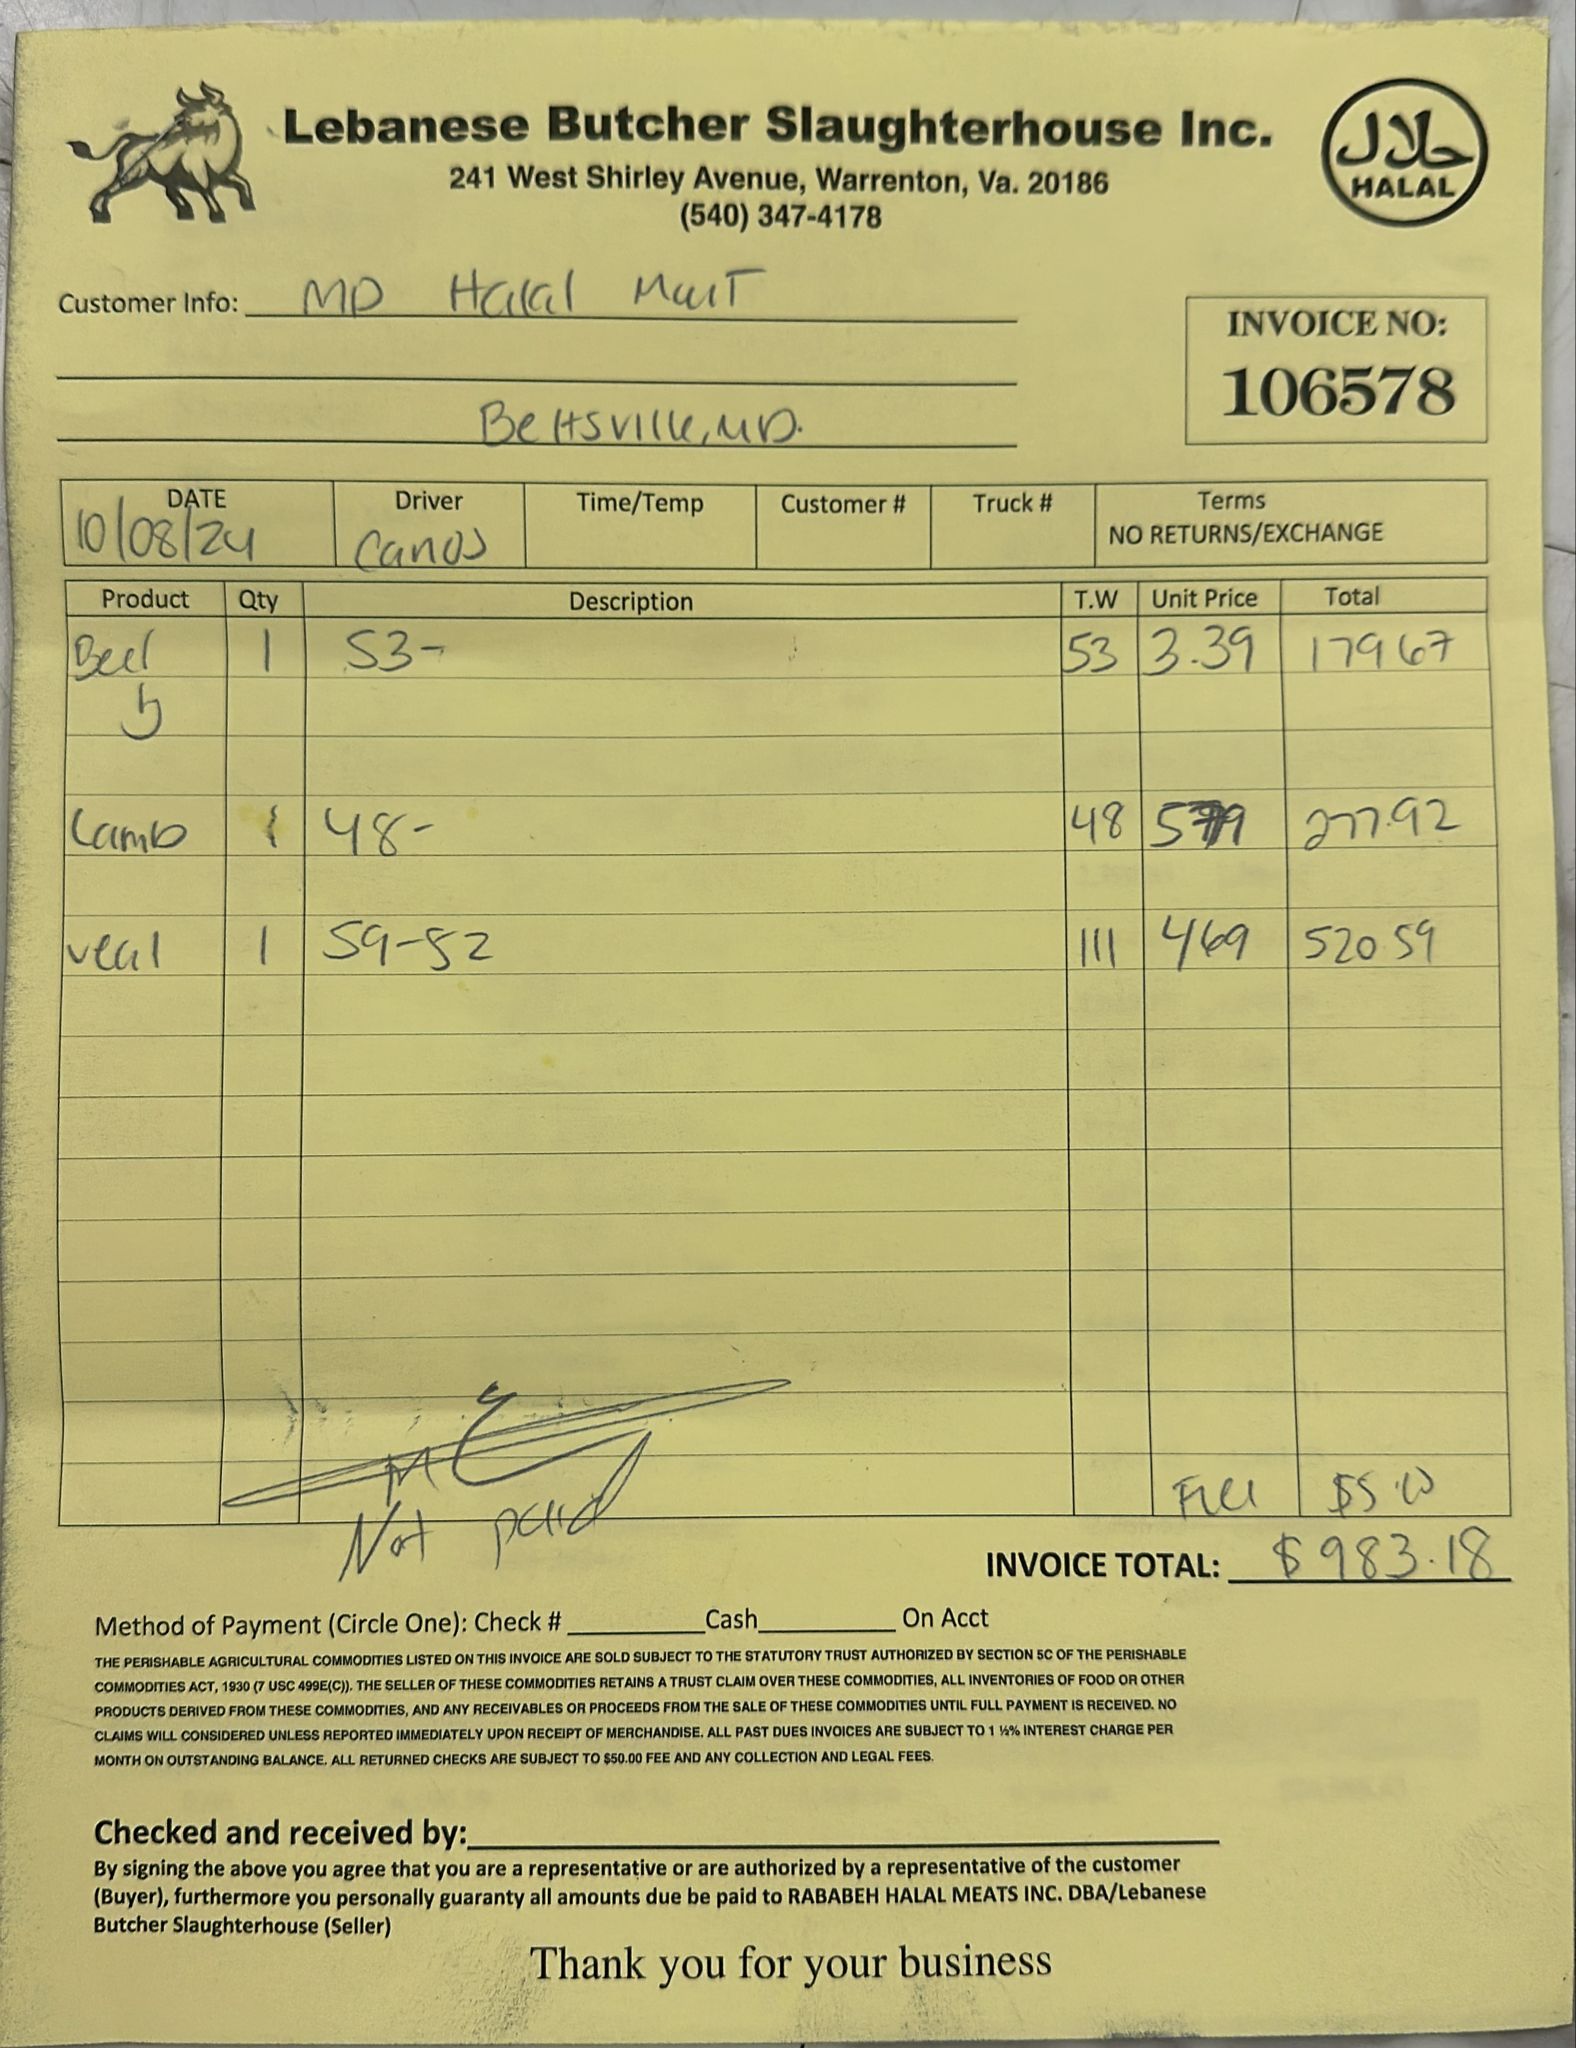 Lebanese Butcher Slaughterhouse Inc.
241 West Shirley Avenue, Warrenton, Va. 20186
(540) 347-4178
حلال
HALAL
Customer Info: MD Halal Mart
INVOICE NO:
106578
Beltsville, MD.
DATE Driver Time/Temp Customer # Truck # Terms
10/08/24 NO RETURNS/EXCHANGE
Product Qty Description T.W Unit Price Total
Beef 1 53- 53 3.39 179 67
Lamb 1 48- 48 5 79 277.92
veal 1 59-52 111 469 520 59
Fuel $5.00
Not paid
INVOICE TOTAL: $983.18
Method of Payment (Circle One): Check # Cash On Acct
THE PERISHABLE AGRICULTURAL COMMODITIES LISTED ON THIS INVOICE ARE SOLD SUBJECT TO THE STATUTORY TRUST AUTHORIZED BY SECTION 5C OF THE PERISHABLE
COMMODITIES ACT, 1930 (7 USC 499E(C)). THE SELLER OF THESE COMMODITIES RETAINS A TRUST CLAIM OVER THESE COMMODITIES, ALL INVENTORIES OF FOOD OR OTHER
PRODUCTS DERIVED FROM THESE COMMODITIES, AND ANY RECEIVABLES OR PROCEEDS FROM THE SALE OF THESE COMMODITIES UNTIL FULL PAYMENT IS RECEIVED. NO
CLAIMS WILL CONSIDERED UNLESS REPORTED IMMEDIATELY UPON RECEIPT OF MERCHANDISE. ALL PAST DUES INVOICES ARE SUBJECT TO 1 ½% INTEREST CHARGE PER
MONTH ON OUTSTANDING BALANCE. ALL RETURNED CHECKS ARE SUBJECT TO $50.00 FEE AND ANY COLLECTION AND LEGAL FEES.
Checked and received by:
By signing the above you agree that you are a representative or are authorized by a representative of the customer
(Buyer), furthermore you personally guaranty all amounts due be paid to RABABEH HALAL MEATS INC. DBA/Lebanese
Butcher Slaughterhouse (Seller)
Thank you for your business